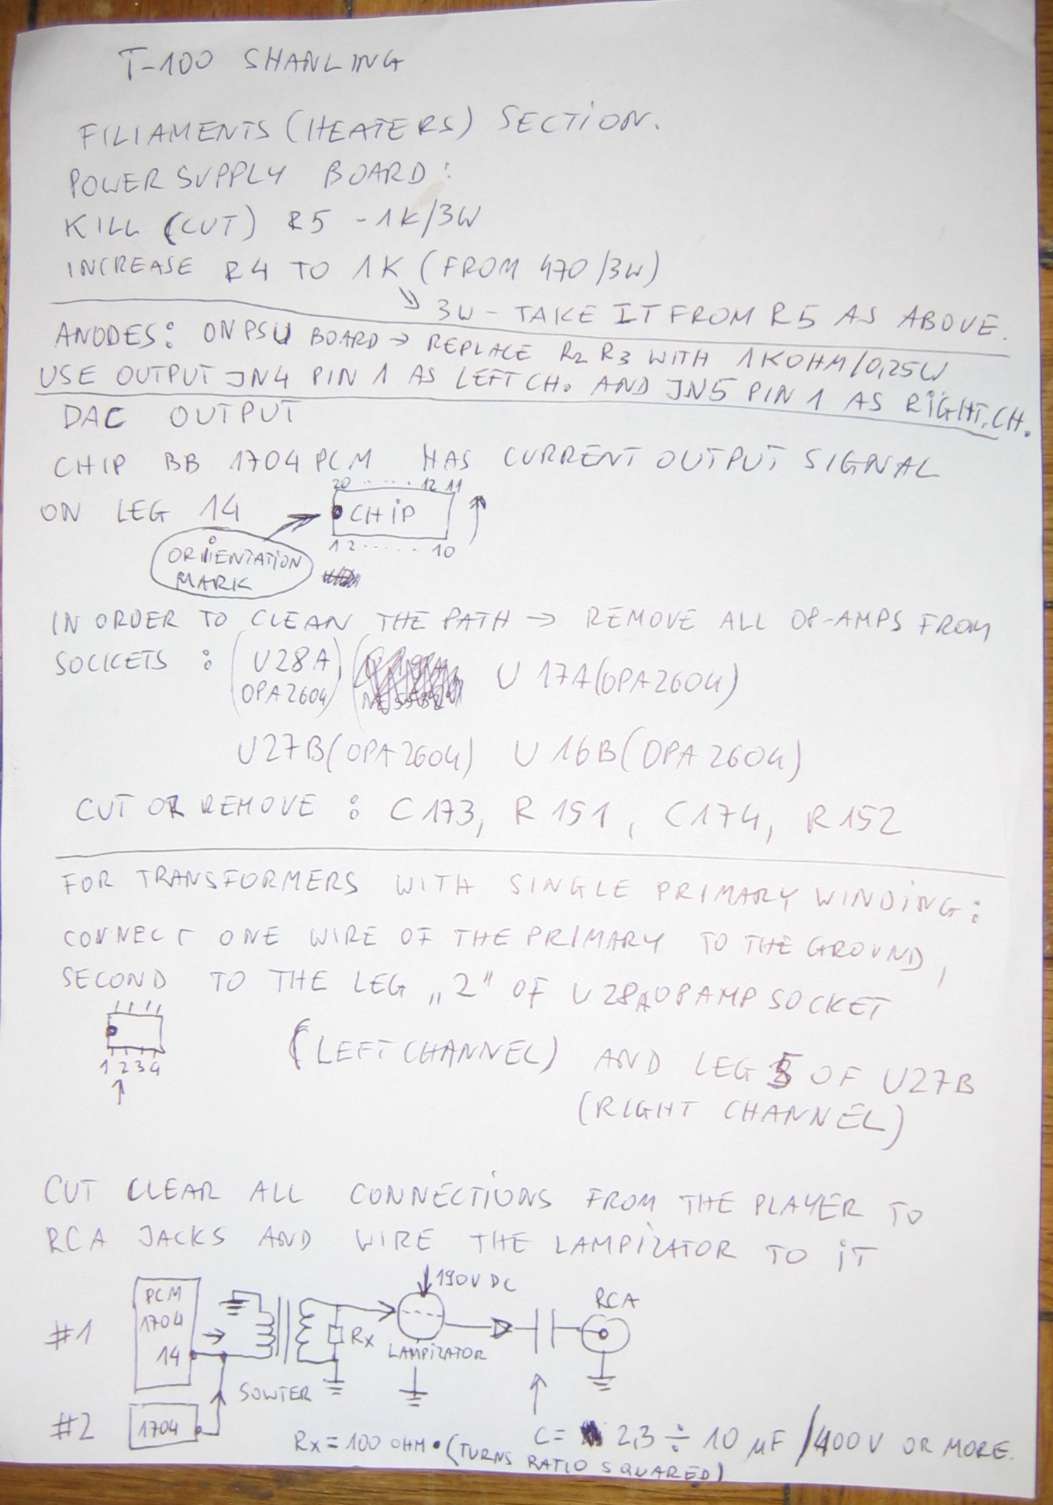 T-100 SHANLING
FILIAMENTS (HEATERS) SECTION.
POWER SUPPLY BOARD:
KILL (CUT) R5 - 1K/3W
INCREASE R4 TO 1K (FROM 470/3W)
↘ 3W - TAKE IT FROM R5 AS ABOVE.
ANODES: ON PSU BOARD → REPLACE R2 R3 WITH 1KOHM/0,25W
USE OUTPUT JN4 PIN 1 AS LEFT CH. AND JN5 PIN 1 AS RIGHT CH.
DAC OUTPUT
CHIP BB 1704 PCM HAS CURRENT OUTPUT SIGNAL
ON LEG 14
20 ...... 12 11
CHIP
1 2 ...... 10
ORIENTATION
MARK
IN ORDER TO CLEAN THE PATH → REMOVE ALL OP-AMPS FROM
SOCKETS : (U28A OPA2604) U17A (OPA2604)
U27B (OPA2604) U16B (OPA2604)
CUT OR REMOVE : C173, R151, C174, R152
FOR TRANSFORMERS WITH SINGLE PRIMARY WINDING:
CONNECT ONE WIRE OF THE PRIMARY TO THE GROUND,
SECOND TO THE LEG „2" OF U28A OPAMP SOCKET
1 2 3 4
(LEFT CHANNEL) AND LEG 5 OF U27B
(RIGHT CHANNEL)
CUT CLEAR ALL CONNECTIONS FROM THE PLAYER TO
RCA JACKS AND WIRE THE LAMPIZATOR TO IT
#1
PCM
1704
14
SOWTER
Rx
190V DC
LAMPIZATOR
RCA
#2
1704
C= 2,3 ÷ 10 µF / 400V OR MORE.
Rx = 100 OHM • (TURNS RATIO SQUARED)